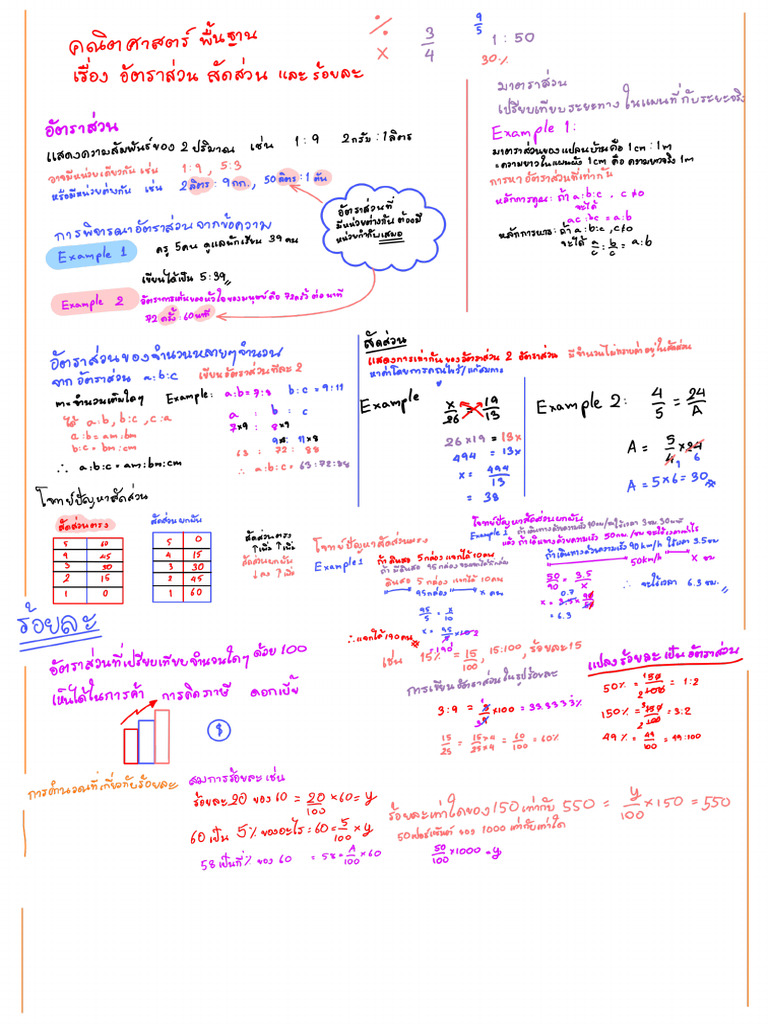 คณิตศาสตร์ พื้นฐาน
เรื่อง อัตราส่วน สัดส่วน และร้อยละ
÷ 3/4 9/5 1 : 50
× 30%
อัตราส่วน
แสดงความสัมพันธ์ของ 2 ปริมาณ เช่น 1 : 9 2 กรัม : 1 ลิตร
อาจมีหน่วยเดียวกัน เช่น 1 : 9 , 5 : 3
หรือมีหน่วยต่างกัน เช่น 2 ลิตร : 9 กก. , 50 ลิตร : 1 ตัน
อัตราส่วนที่
มีหน่วยต่างกัน ต้องมี
หน่วยกำกับเสมอ
การพิจารณาอัตราส่วนจากข้อความ
Example 1 ครู 5 คน ดูแลนักเรียน 39 คน
เขียนได้เป็น 5 : 39
Example 2 อัตราการเต้นของหัวใจของมนุษย์คือ 72 ครั้ง ต่อ นาที
72 ครั้ง : 60 นาที
มาตราส่วน
เปรียบเทียบระยะทางในแผนที่กับระยะจริง
Example 1 :
มาตราส่วนของแปลนบ้านคือ 1 cm : 1 m
= ความยาวในแผนผัง 1 cm คือ ความยาวจริง 1 m
การหาอัตราส่วนที่เท่ากัน
หลักการคูณ : ถ้า a : b : c , c ≠ 0
จะได้
ac : bc = a : b
หลักการหาร : ถ้า a : b : c , c ≠ 0
จะได้ a/c : b/c = a : b
อัตราส่วนของจำนวนหลายๆจำนวน
จาก อัตราส่วน a : b : c เขียนอัตราส่วนทีละ 2
m = จำนวนเต็มใดๆ Example : a : b = 7 : 8 b : c = 9 : 11
ได้ a : b , b : c , c : a a : b : c
a : b = am : bm 7×9 : 8×9
b : c = bm : cm 9×8 : 11×8
63 : 72 : 88
∴ a : b : c = am : bm : cm ∴ a : b : c = 63 : 72 : 88
สัดส่วน
แสดงการเท่ากันของอัตราส่วน 2 อัตราส่วน มีจำนวนไม่ทราบค่าอยู่ในสัดส่วน
หาค่าโดยการคูณไขว้/แก้สมการ
Example x/26 = 19/13
26 × 19 = 13x
494 = 13x
x = 494/13
= 38
Example 2 : 4/5 = 24/A
A = 5/4 × 24
1 6
A = 5 × 6 = 30
โจทย์ปัญหาสัดส่วน
สัดส่วนตรง สัดส่วนผกผัน
5 60 5 0
4 45 4 15
3 30 3 30
2 15 2 45
1 0 1 60
สัดส่วนตรง
↑เพิ่ม ↑เพิ่ม
สัดส่วนผกผัน
↓ลง ↑เพิ่ม
โจทย์ปัญหาสัดส่วนตรง
Example 1 ถ้า ดินสอ 5 กล่อง แจกได้ 10 คน
ถ้า มีดินสอ 95 กล่อง
ดินสอ 5 กล่อง แจกได้ 10 คน
95 กล่อง x คน
95/5 = x/10
x = 95/5 × 10 2
∴ แจกได้ 190 คน = 190
โจทย์ปัญหาสัดส่วนผกผัน
Example 1 ถ้าเดินทางด้วยความเร็ว 90 km/h ใช้เวลา 3 ชม. 30 นาที
แล้ว ถ้าเดินทางด้วยความเร็ว 50 km./ชม จะใช้เวลาเท่าไร
ถ้าเดินทางด้วยความเร็ว 90 km/h ใช้เวลา 3.5 ชม
50 km/h x ชม
50/90 = 3.5/x ∴ จะใช้เวลา 6.3 ชม.
0.7
x = 3.5 × 90/50
= 6.3
ร้อยละ
อัตราส่วนที่เปรียบเทียบจำนวนใดๆ ด้วย 100
เห็นได้ในการค้า การคิดภาษี ดอกเบี้ย
เช่น 15% = 15/100 , 15 : 100 , ร้อยละ 15
การเขียนอัตราส่วนในรูปร้อยละ
3 : 9 = 3/9 × 100 = 33.3333%
15/25 = 15×4/25×4 = 60/100 = 60%
แปลงร้อยละเป็นอัตราส่วน
50% = 50/100 = 1 : 2
150% = 150/100 = 3 : 2
49% = 49/100 = 49 : 100
การคำนวณที่เกี่ยวกับร้อยละ
สมการร้อยละ เช่น
ร้อยละ 20 ของ 60 = 20/100 × 60 = y
60 เป็น 5% ของอะไร : 60 = 5/100 × y
58 เป็นกี่% ของ 60 = 58 = A/100 × 60
ร้อยละเท่าใดของ 150 เท่ากับ 550 = y/100 × 150 = 550
50 เปอร์เซ็นต์ ของ 1000 เท่ากับเท่าใด
50/100 × 1000 = y